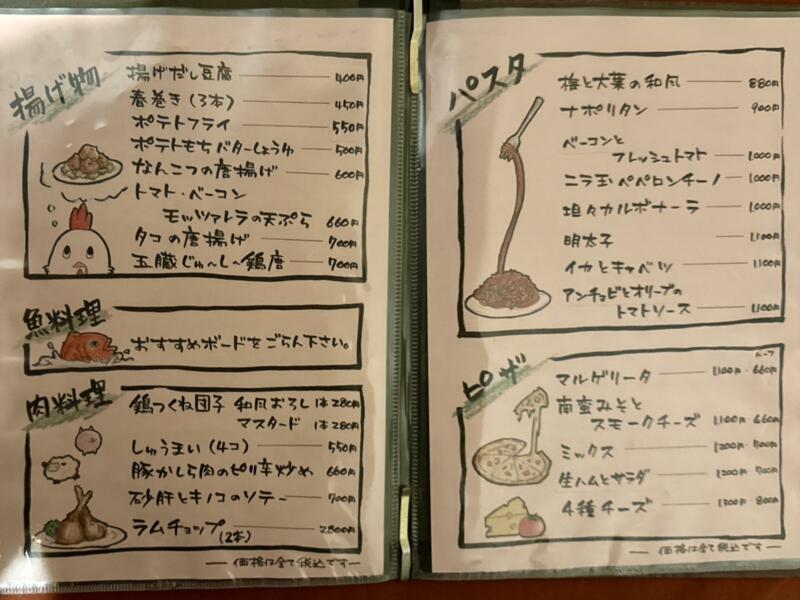 揚げ物
揚げだし豆腐 400円
春巻き(3本) 450円
ポテトフライ 550円
ポテトもちバターしょうゆ 500円
なんこつの唐揚げ 600円
トマト・ベーコン
モッツァレラの天ぷら 660円
タコの唐揚げ 700円
五臓じゅ〜し〜鶏唐 700円
魚料理
おすすめボードをごらん下さい。
肉料理
鶏つくね団子 和風おろし 1本280円
マスタード 1本280円
しゅうまい(4コ) 550円
豚かしら肉のピリ辛炒め 660円
砂肝とキノコのソテー 700円
ラムチョップ(2本) 2,800円
価格は全て税込です
パスタ
梅と大葉の和風 880円
ナポリタン 900円
ベーコンと
フレッシュトマト 1,000円
ニラ玉ペペロンチーノ 1,000円
坦々カルボナーラ 1,000円
明太子 1,100円
イカとキャベツ 1,100円
アンチョビとオリーブの
トマトソース 1,100円
ピザ
ハーフ
マルゲリータ 1,100円・660円
南蛮みそと
スモークチーズ 1,100円 660円
ミックス 1,200円・700円
生ハムとサラダ 1,200円 700円
4種チーズ 1,300円 800円
価格は全て税込です